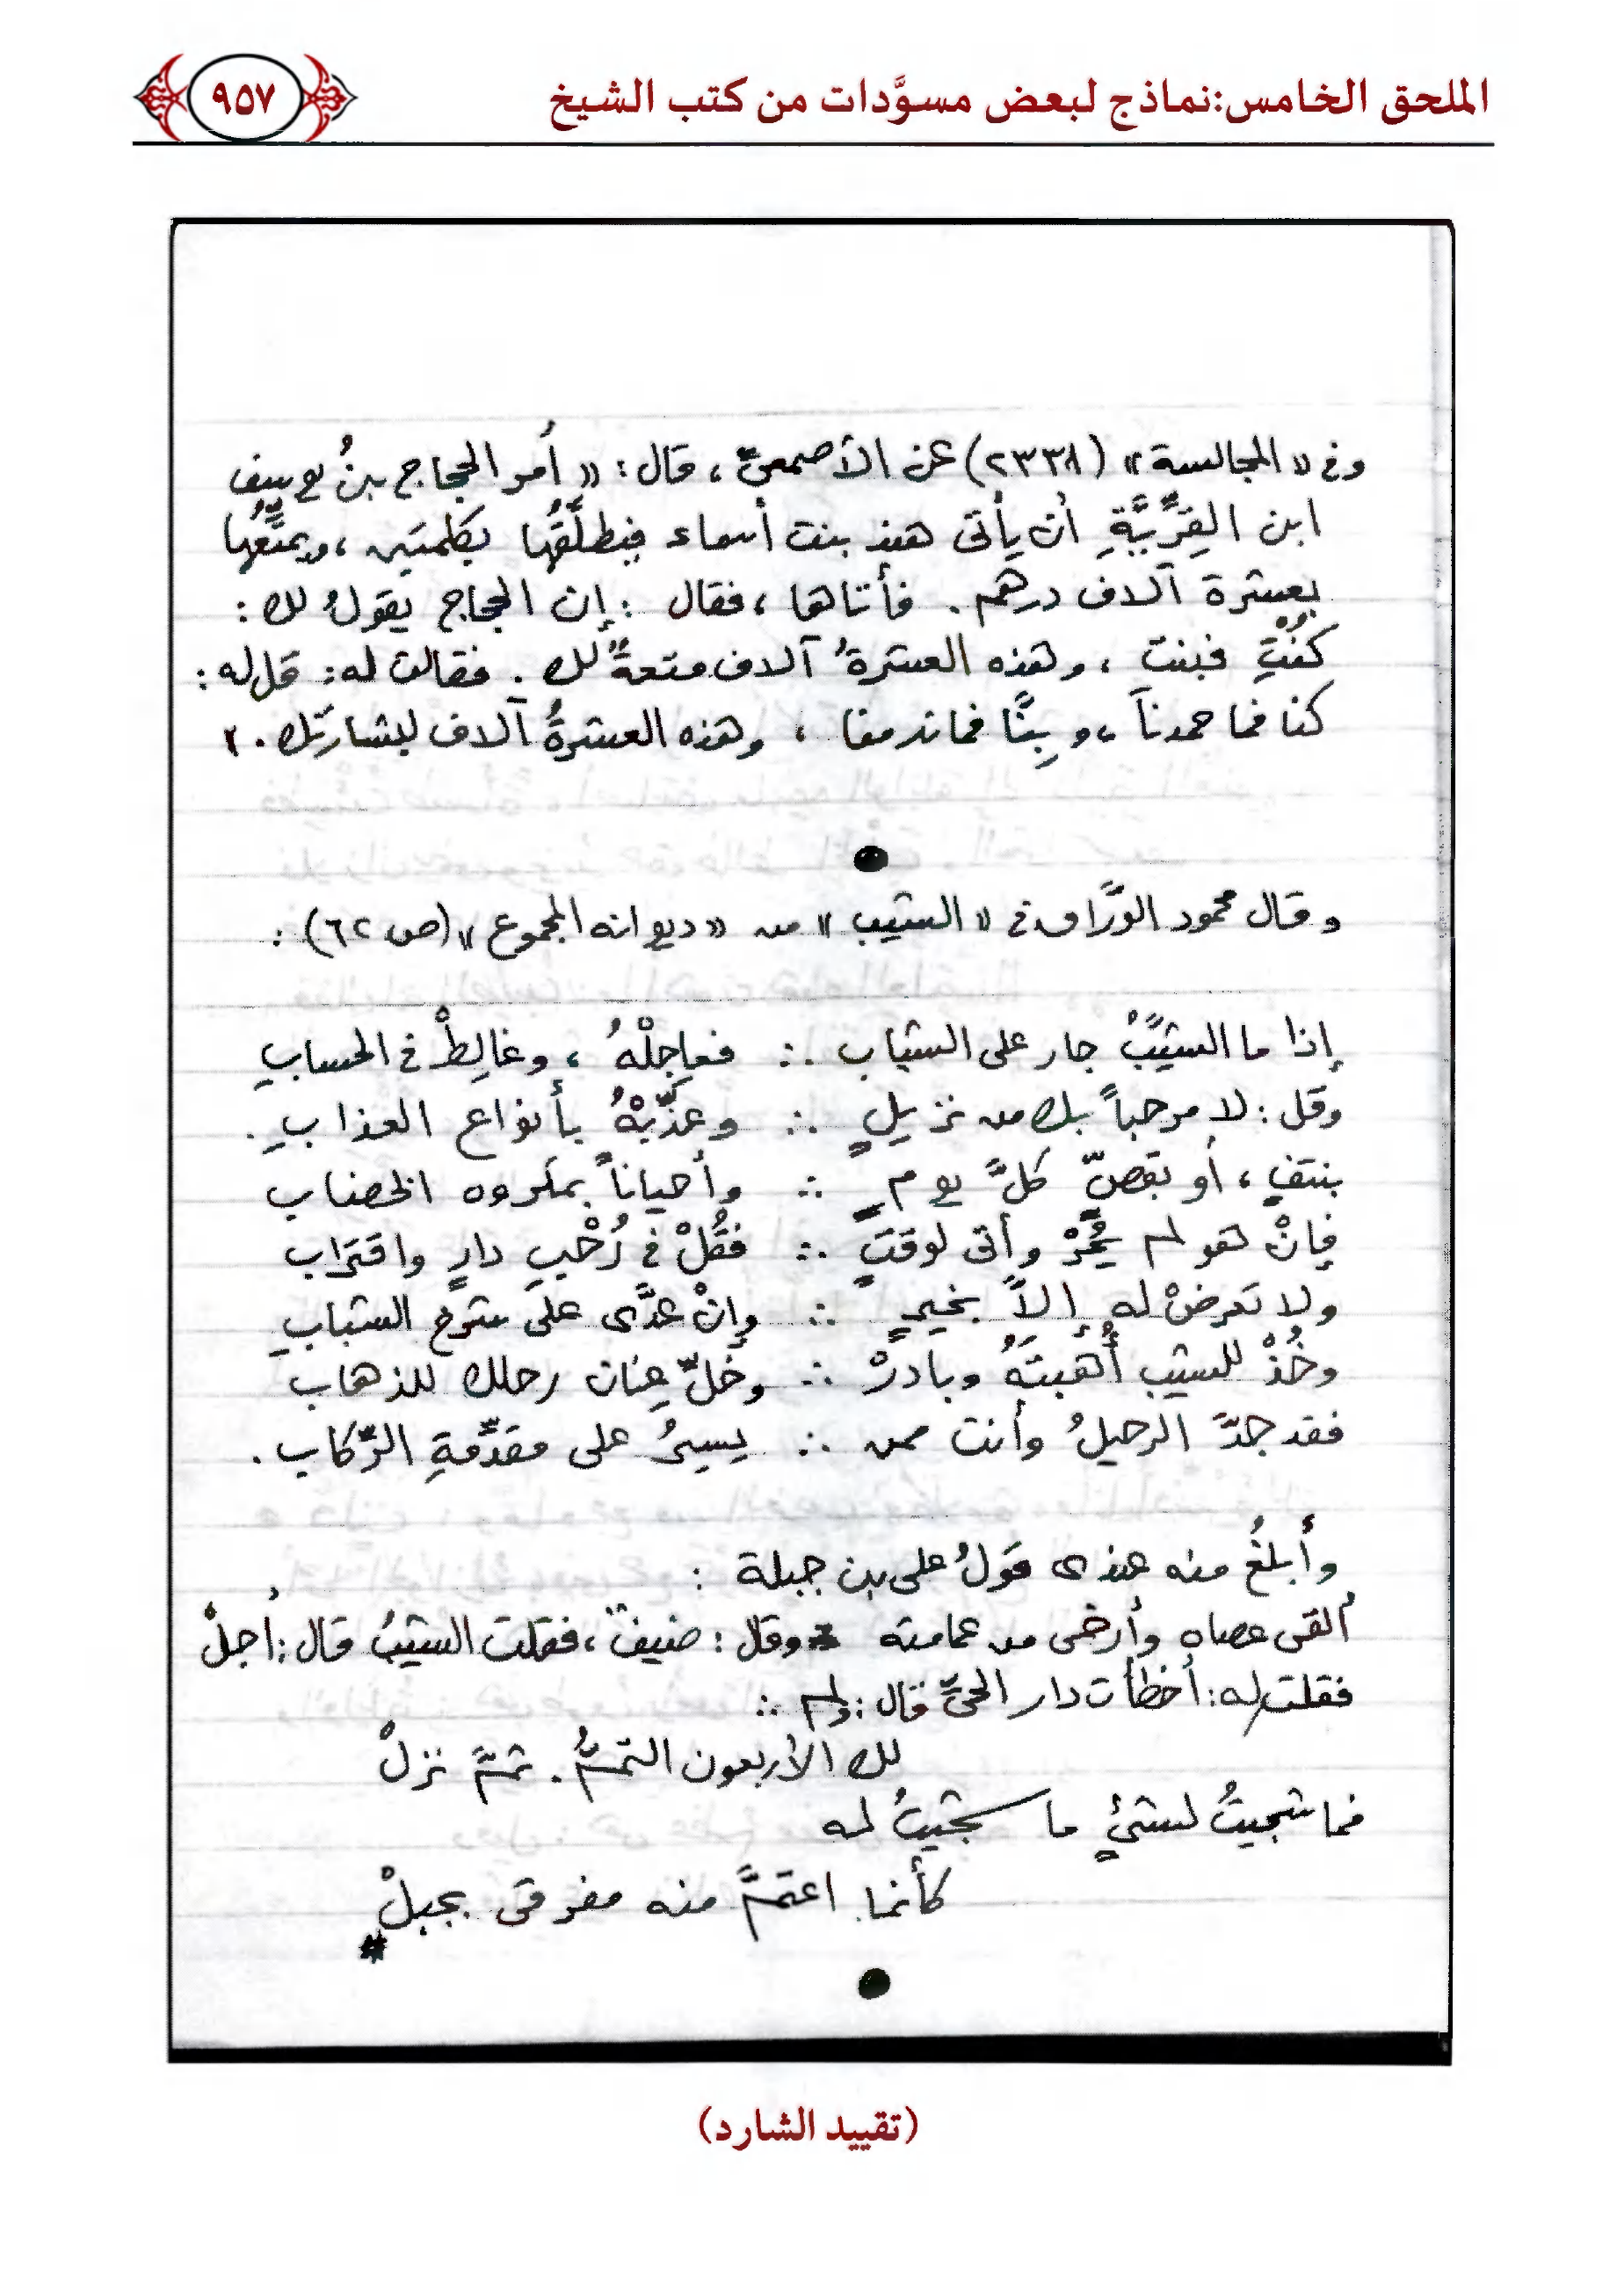 الملحق الخامس:نماذج لبعض مسوَّدات من كتب الشيخ
٩٥٧
وفي «المجالسة» (٢٣٣٨) عن الأصمعيِّ، قال: «أمر الحجاج بنُ يوسف
ابن القِرِّيَّةِ أن يأتى هند بنت أسماء فيطلِّقُها بكلمتين، ويمتِّعُها
بعشرة آلاف درهم. فأتاها، فقال: إن الحجاج يقولُ لك:
كُنْتِ فبنت، وهذه العشرةُ آلاف متعةٌ لك. فقالت له: قل له:
كنا فما حمدناَ، وبِنَّا فما ندمنا، وهذه العشرةُ آلاف لبشارتِك.»
وقال محمود الورَّاق في «الشيب» من «ديوانه المجموع» (ص ٦٢):
إذا ما الشَّيْبُ جار على الشباب ∴ فعاجِلْهُ، وغالِطْ في الحسابِ
وقل: لا مرحباً بك من نزيلٍ ∴ وعذِّبْهُ بأنواع العذابِ.
بنتفٍ، أو بقصٍّ كلَّ يومٍ ∴ وأحياناً بمكروه الخضاب
فإنْ هو لم يَحُرْ وأتى لوقتٍ ∴ فقُلْ في رُحْبِ دارٍ واقتراب
ولا تعرضْ له إلاَّ بخيرٍ ∴ وإنْ عدَّى على شرخ الشبابِ
وخُذْ للشيب أُهبتَهُ وبادرْ ∴ وخَلِّ عِنان رحلك للذهاب
فقد جدَّ الرحيلُ وأنت ممن ∴ يسيرُ على مقدِّمةِ الرِّكاب.
وأبلغُ منه عندى قولُ على بن جبلة:
ألقى عصاه وأرخى من عمامته * وقال: ضيفٌ، فقلت الشيبُ قال: أجلْ
فقلت له: أخطأت دار الحيِّ قال: ولم ∴
لك الأربعون التمُّ. ثمَّ نزلْ
فما شجيتُ لشئٍ ما شجيتُ له
كأنما اعتمَّ منه مفرقى بجبلْ
(تقييد الشارد)